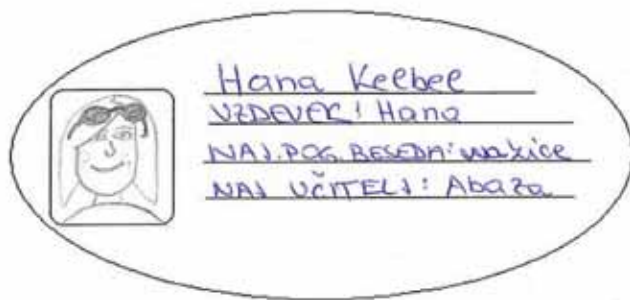 Hana Kelbel
VZDEVEK: Hana
NAJ.POG. BESEDA:
NAJ UČITELJ: Abaza